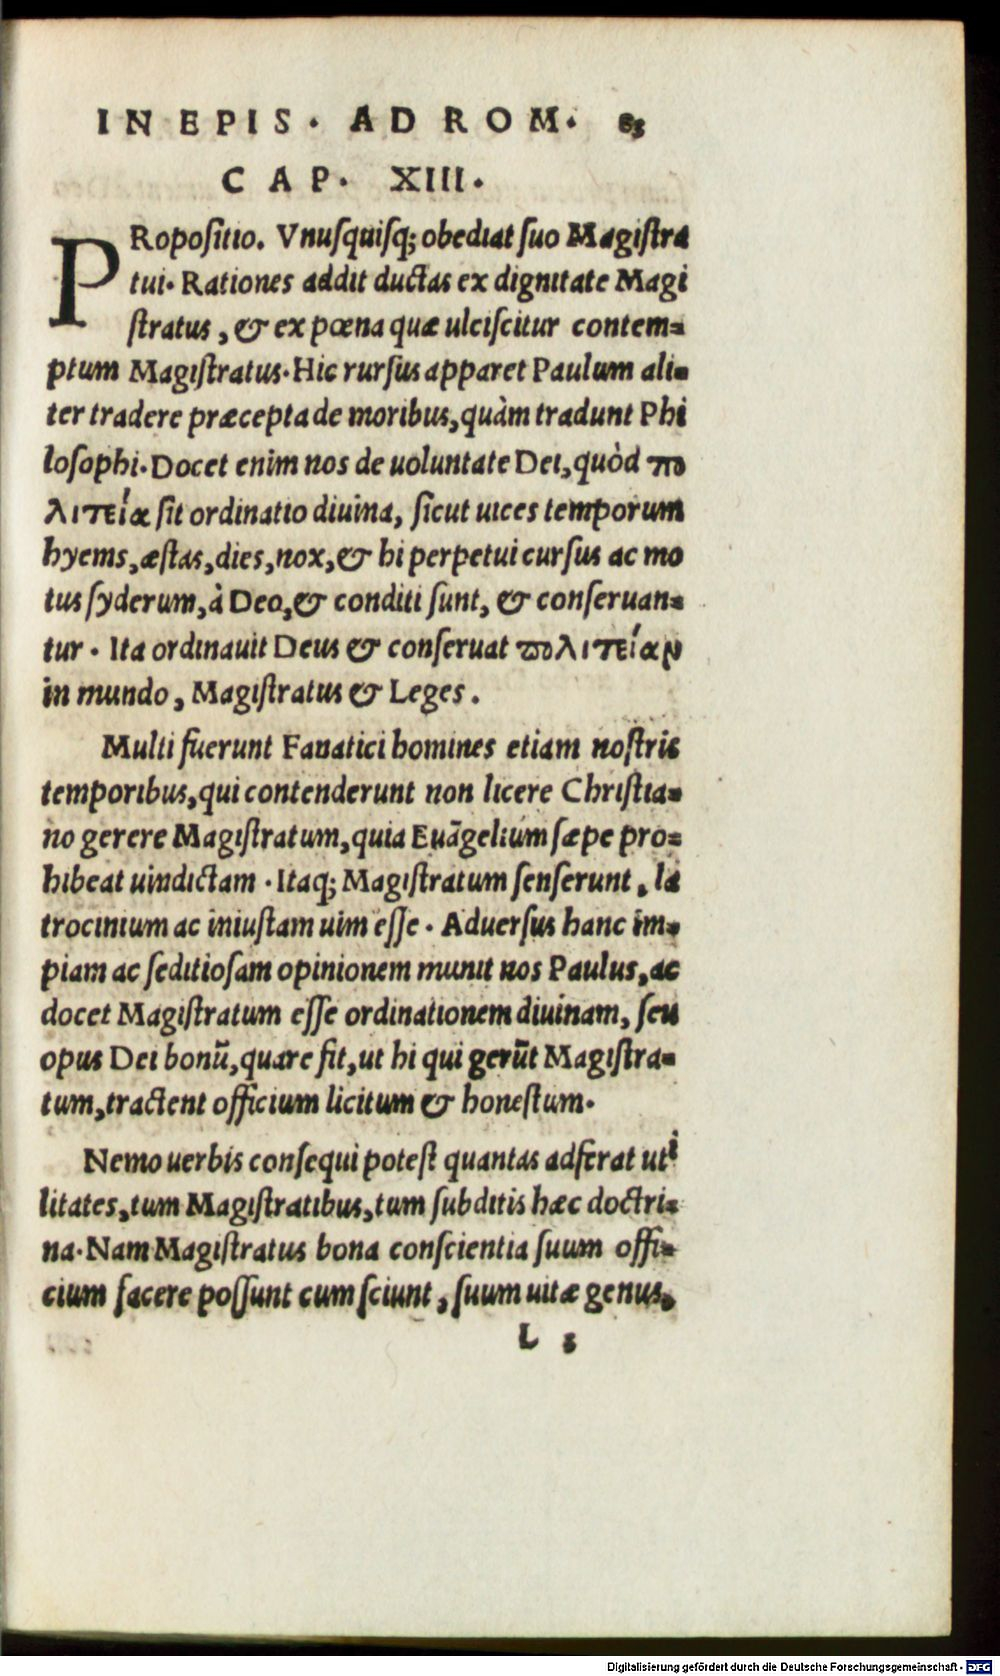 IN EPIS. AD ROM. 83
CAP. XIII.
PRopoſitio. Vnuſquiſq; obediat ſuo Magiſtra
tui. Rationes addit ductas ex dignitate Magi
ſtratus, & ex pœna quæ ulciſcitur contem-
ptum Magiſtratus. Hic rurſus apparet Paulum ali-
ter tradere præcepta de moribus, quàm tradunt Phi
loſophi. Docet enim nos de uoluntate Dei, quòd πο
λιτεία ſit ordinatio diuina, ſicut uices temporum
hyems, æſtas, dies, nox, & hi perpetui curſus ac mo
tus ſyderum, à Deo, & conditi ſunt, & conſeruan-
tur. Ita ordinauit Deus & conſeruat πολιτείαν
in mundo, Magiſtratus & Leges.
Multi fuerunt Fanatici homines etiam noſtris
temporibus, qui contenderunt non licere Chriſtia-
no gerere Magiſtratum, quia Euāgelium ſæpe pro-
hibeat uindictam. Itaq; Magiſtratum ſenſerunt, la
trocinium ac iniuſtam uim eſſe. Aduerſus hanc im-
piam ac ſeditioſam opinionem munit nos Paulus, ac
docet Magiſtratum eſſe ordinationem diuinam, ſeu
opus Dei bonū, quare fit, ut hi qui gerūt Magiſtra-
tum, tractent officium licitum & honeſtum.
Nemo uerbis conſequi poteſt quantas adferat uti
litates, tum Magiſtratibus, tum ſubditis hæc doctri-
na. Nam Magiſtratus bona conſcientia ſuum offi-
cium facere poſſunt cum ſciunt, ſuum uitæ genus,
L 3
Digitalisierung gefördert durch die Deutsche Forschungsgemeinschaft - DFG